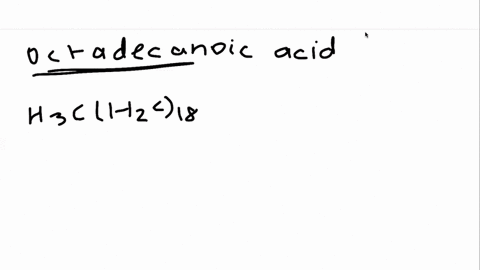 octadecanoic acid
H3C(H2C)18